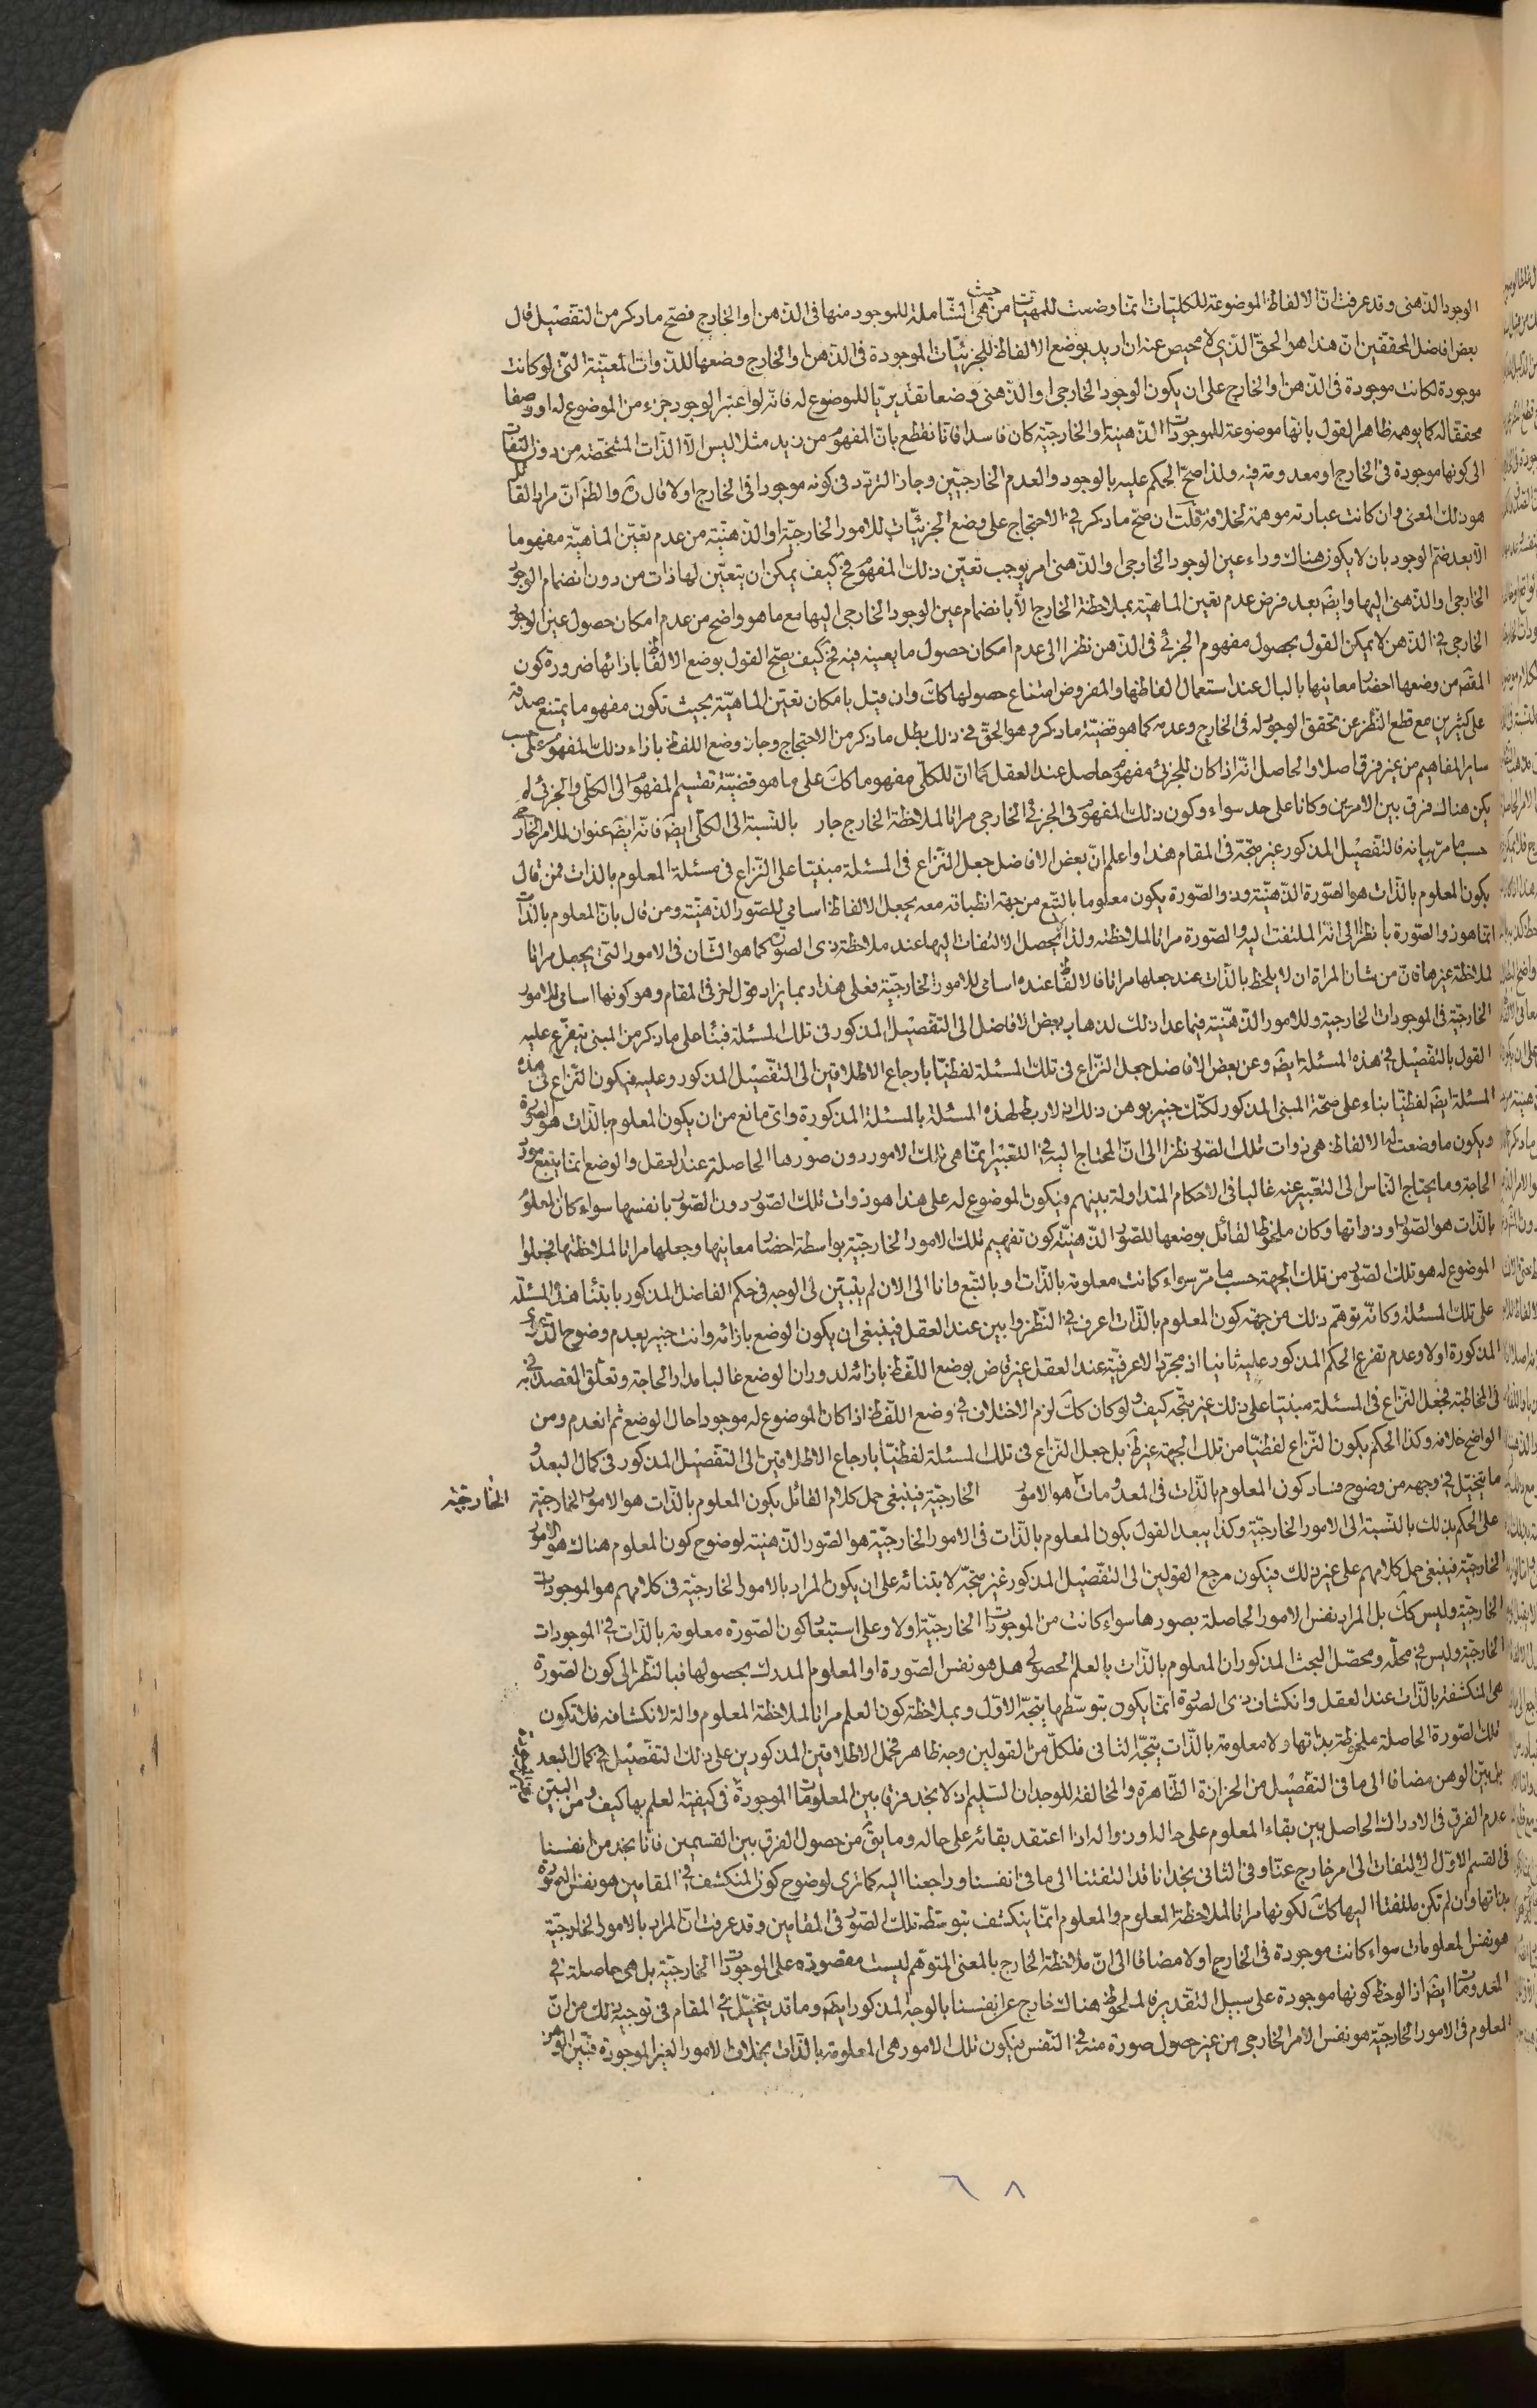 الوجود الذهنى وقد عرفت انّ الالفاظ الموضوعة للكليّات انمّا وضعت للمهيّات من حيث هى الشّاملة للموجود منها فى الذّهن او الخارج فصّح ما ذكر من التفصّيل قال
بعض افاضل المحققين انّ هذا هو الحقّ الذّى لا محيص عنه ان اريد بوضع الالفاظ للجزئيّات الموجودة فى الذّهن او الخارج وضعها للذّوات المعيّنة التّى لو كانت
موجودة لكانت موجودة فى الذّهن او الخارج على ان يكون الوجود الخارجى او الذّهنى وضعا تقديريّا للموضوع له فانّه لو اعتبر الوجود جزء من الموضوع له او وصفا
محققا له كما يوهمه ظاهر القول بانّها موضوعة للموجودات الذّهنيّة او الخارجيّة كان فاسدا فانّا نقطع بانّ المفهوم من زيد مثلا ليس الّا الذّات المشخّصة من دون التفات
الى كونها موجودة فى الخارج او معدومة فيه ولذا صحّ الحكم عليه بالوجود والعدم الخارجيّين وجاز التردّد فى كونه موجودا فى الخارج اولا قال ره والظّ انّ مراد القائل
هو ذلك المعنى وان كانت عبارته موهمة لخلافه قلت ان صحّ ما ذكر فى الاحتجاج على وضع الجزئيّات للامور الخارجيّة او الذّهنيّة من عدم تعيّن الماهيّة مفهوما
الّا بعد ضمّ الوجود بان لا يكون هناك وراء عين الوجود الخارجى او الذّهنى امر يوجب تعيّن ذلك المفهوم فح كيف يمكن ان يتعيّن لها ذات من دون انضمام الوجود
الخارجى او الذّهنى اليها وايضَ بعد فرض عدم تعين الماهيّة بملاحظة الخارج الّا بانضمام عين الوجود الخارجى اليها مع ما هو واضح من عدم امكان حصول عين الوجود
الخارجى فى الذّهن لا يمكن القول بحصول مفهوم الجزئى فى الذّهن نظرا الى عدم امكان حصول ما يعينه فيه فح كيف يصّح القول بوضع الالفاظ بازائها ضرورة كون
المقصَ من وضعها احضار معانيها بالبال عند استعمال الفاظها والمفروض امتناع حصولها ككَ وان قيل بامكان تعيّن الماهيّة بحيث تكون مفهوما يمتنع صدقه
على كثيرين مع قطع النّظر عن تحقق الوجود له فى الخارج وعدمه كما هو قضيّة ما ذكره وهو الحقّ فى ذلك بطل ما ذكر من الاحتجاج وجاز وضع اللفظ بازاء ذلك المفهوم على حسب
ساير المفاهيم من غير فرق اصلا والحاصل انّه اذا كان للجزئى مفهوم حاصل عند العقل كما انّ للكلّى مفهوما ككَ على ما هو قضيّة تقسيم المفهوم الى الكلّى والجزئى لم
يكن هناك فرق بين الامرين وكانا على حد سواء وكون ذلك المفهوم فى الجزئى الخارجى مراتا لملاحظة الخارج جار بالنّسبة الى الكلّى ايضَ فانّه ايضَ عنوان للامر الخارجى
حسبما مرّ بيانه فالتفصّيل المذكور غير متّجه فى المقام هذا واعلم انّ بعض الافاضل جعل النّزاع فى المسئلة مبنيّا على النّزاع فى مسئلة المعلوم بالذّات فمن قال
بكون المعلوم بالذّات هو الصّورة الذّهنيّة وذو الصّورة يكون معلوما بالتّبع من جهة انطباقه معه يجعل الالفاظ اسامى للصّور الذّهنيّة ومن قال بانّ المعلوم بالذّات
انمّا هو ذو الصّورة بانظر الى انّه الملتفت اليه والصّورة مراتا لملاحظته ولذا لا يحصل الالتفات اليها عند ملاحظة ذى الصّورة كما هو الشّان فى الامور التّى يجعل مراتا
لملاحظة غيرها فانّ من شان المراة ان لا يلحظ بالذّات عند جعلها مراتا فالالفاظ عنده اسامى للامور الخارجيّة فعلى هذا ربما يزاد قول اخر فى المقام وهو كونها اسامى للامور
الخارجيّة فى الموجودات الخارجيّة وللامور الذّهنيّة فيما عدا ذلك لذهاب بعض الافاضل الى التفصّيل المذكور فى تلك المسئلة فبناء على ما ذكر من المبنى يتفرّع عليه
القول بالتفصّيل فى هذه المسئلة ايضَ وعن بعض الافاضل جعل النّزاع فى تلك المسئلة لفظيّا بارجاع الاطلاقين الى التفصّيل المذكور وعليه فيكون النّزاع فى هذه
المسئلة ايضَ لفظيّا بناء على صحّة المبنى المذكور لكنّك خبير بوهن ذلك اذ لا ربط لهذه المسئلة بالمسئلة المذكورة واىّ مانع من ان يكون المعلوم بالذّات هو الصّورة
ويكون ما وضعت له الالفاظ هى ذوات تلك الصّور نظرا الى انّ المحتاج اليه فى التعّبير انمّا هى تلك الامور دون صورها الحاصلة عند العقل والوضع انمّا يتبع مورد
الحاجة وما يحتاج النّاس الى التعّبير عنه غالبا فى الاحكام المتداولة بينهم فيكون الموضوع له على هذا هو ذوات تلك الصّور دون الصّور بانفسها سواء كان المعلوم
بالذّات هو الصّور او ذواتها وكان ملحوظ القائل بوضعها للصّور الذّهنيّة كون تفهيم تلك الامور الخارجيّة بواسطة احضار معانيها وجعلها مراتا لملاحظتها فجعلوا
الموضوع له هو تلك الصّور من تلك الجهة حسب ما مرّ سواء كانت معلومة بالذّات او بالتّبع وانا الى الان لم يتبيّن لى الوجه فى حكم الفاضل المذكور بابتناء هذه المسئلة
على تلك المسئلة وكانّه توهّم ذلك من جهة كون المعلوم بالذّات اعرف فى النّظر وابين عند العقل فينبغى ان يكون الوضع بازائه وانت خبير بعدم وضوح الدّعوى
المذكورة اولا وعدم تفرع الحكم المذكور عليه ثانيا اذ مجرّد الاعرفيّة عند العقل غير قاض بوضع اللّفظ بازائه لدوران الوضع غالبا مدار الحاجة وتعلّق القصد به
فى المخاطبة فجعل النّزاع فى المسئلة مبنيّا على ذلك غير متّجه كيف ولو كان ككَ لزم الاختلاف فى وضع اللّفظ اذا كان الموضوع له موجودا حال الوضع ثمّ انعدم ومن
الواضح خلافه وكذا الحكم بكون النّزاع لفظيّا من تلك الجهة غير ظَ بل جعل النّزاع فى تلك المسئلة لفظيّا بارجاع الاطلاقين الى التفصّيل المذكور فى كمال البعد و
ما يتخيّل فى وجهه من وضوح فساد كون المعلوم بالذّات فى المعدومات هو الامور الخارجيّة فينبغى حمل كلام القائل بكون المعلوم بالذّات هو الامور الخارجيّة
الخارجيّة
على الحكم بذلك بالنّسبة الى الامور الخارجيّة وكذا يبعد القول بكون المعلوم بالذّات فى الامور الخارجيّة هو الصّور الذّهنيّة لوضوح كون المعلوم هناك هو الامور
الخارجيّة فينبغى حمل كلامهم على غير ذلك فيكون مرجع القولين الى التفصّيل المذكور غير متّجه لابتنائه على ان يكون المراد بالامور الخارجيّة فى كلامهم هو الموجودات
الخارجيّة وليس ككَ بل المراد نفس الامور الحاصلة بصورها سواء كانت من الموجودات الخارجيّة اولا وعلى استبعاد كون الصّورة معلومة بالذّات فى الموجودات
الخارجيّة وليس فى محلّه ومحصّل البحث المذكور ان المعلوم بالذّات بالعلم الحصولى هل هو نفس الصّورة او المعلوم المدرك بحصولها فبالنّظر الى كون الصّورة
هى المنكشفة بالذّات عند العقل وانكشاف ذى الصّورة انمّا يكون بتوسّطها يتّجه الاوّل وبملاحظة كون العلم مراتا لملاحظة المعلوم والة لانكشافه فلا تكون
تلك الصّورة الحاصلة ملحوظة بذاتها ولا معلومة بالذّات يتّجه الثانى فلكلّ من القولين وجه ظاهر فحمل الاطلاقين المذكورين على ذلك التفصّيل فى كمال البعد
بل بيّن الوهن مضافا الى ما فى التفصّيل من الحزازة الظّاهرة والمخالفة للوجدان السّليم اذ لا يجد فرقا بين المعلومات الموجودة فى كيفيّة العلم بها كيف ومن البيّن
عدم الفرق فى الادراك الحاصل بين بقاء المعلوم على حاله او زواله اذا اعتقد بقائه على حاله وما يقَ من حصول الفرق بين القسمين فانّا نجد من انفسنا
فى القسم الاوّل الالتفات الى امر خارج عنّا وفى الثانى نجد انا قد التفتنا الى ما فى انفسنا وراجعنا اليه كما ترى لوضوح كون المنكشف فى المقامين هو نفس الصّورة
بذاتها وان لم تكن ملتفتا اليها ككَ لكونها مراتا لملاحظة المعلوم والمعلوم انمّا ينكشف بتوسّطه تلك الصّور فى المقامين وقد عرفت انّ المراد بالامور الخارجيّة
هو نفس المعلومات سواء كانت موجودة فى الخارج اولا مضافا الى انّ ملاحظة الخارج بالمعنى المتوهّم ليست مقصورة على الموجودات الخارجيّة بل هى حاصلة فى
المعدومات ايضَ اذا لوحظ كونها موجودة على سبيل التقدير فالملحوظ هناك خارج عن انفسنا بالوجه المذكور ايضَ وما قد يتخيّل فى المقام فى توجيه ذلك من انّ
المعلوم فى الامور الخارجيّة هو نفس الامر الخارجى من غير حصول صورة منه فى النّفس فيكون تلك الامور هى المعلومة بالذّات بخلاف الامور الغير الموجودة فبيّن الوهن
٦٨